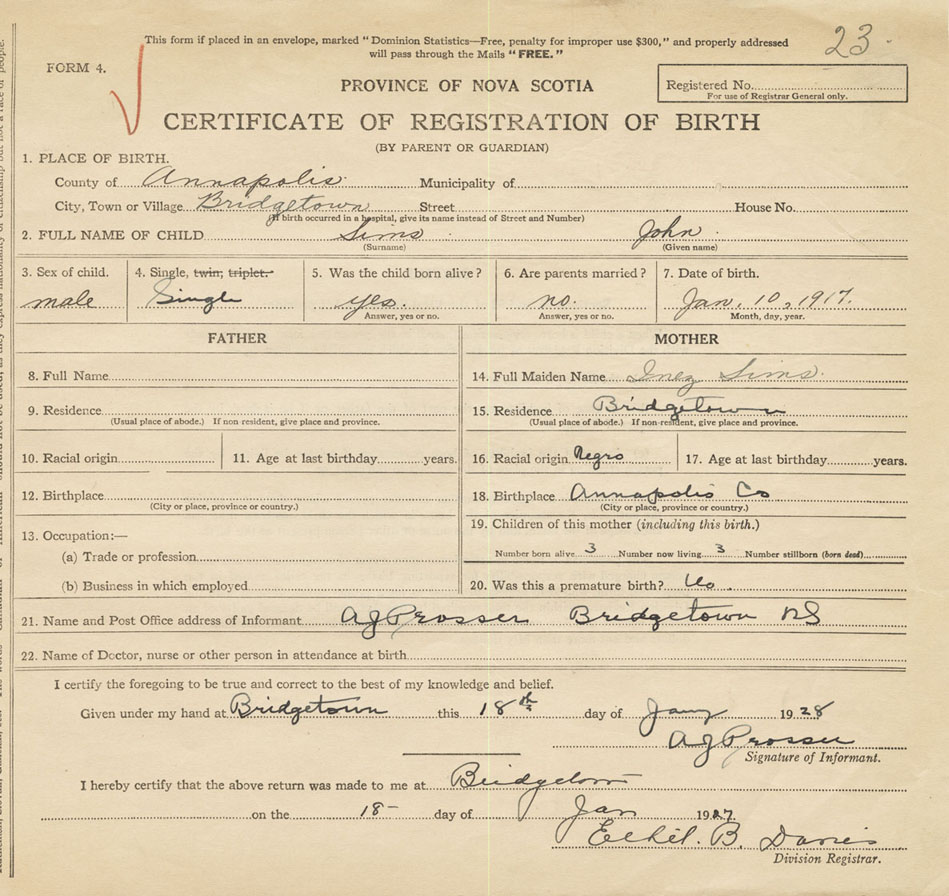 This form if placed in an envelope, marked "Dominion Statistics—Free, penalty for improper use $300," and properly addressed
will pass through the Mails "FREE."
23
FORM 4.
PROVINCE OF NOVA SCOTIA
Registered No.
For use of Registrar General only.
CERTIFICATE OF REGISTRATION OF BIRTH
(BY PARENT OR GUARDIAN)
1. PLACE OF BIRTH.
County of Annapolis Municipality of
City, Town or Village Bridgetown Street House No.
(If birth occurred in a hospital, give its name instead of Street and Number)
2. FULL NAME OF CHILD Sims John
(Surname) (Given name)
3. Sex of child. 4. Single, twin, triplet. 5. Was the child born alive? 6. Are parents married? 7. Date of birth.
male Single yes. no. Jan. 10, 1917.
Answer, yes or no. Answer, yes or no. Month, day, year.
FATHER MOTHER
8. Full Name 14. Full Maiden Name Inez Sims
9. Residence 15. Residence Bridgetown
(Usual place of abode.) If non resident, give place and province. (Usual place of abode.) If non-resident, give place and province.
10. Racial origin 11. Age at last birthday years. 16. Racial origin Negro 17. Age at last birthday years.
12. Birthplace 18. Birthplace Annapolis Co
(City or place, province or country.) (City or place, province or country.)
19. Children of this mother (including this birth.)
13. Occupation:—
(a) Trade or profession Number born alive 3 Number now living 3 Number stillborn (born dead)
(b) Business in which employed 20. Was this a premature birth? No
21. Name and Post Office address of Informant A J Prosser Bridgetown NS
22. Name of Doctor, nurse or other person in attendance at birth
I certify the foregoing to be true and correct to the best of my knowledge and belief.
Given under my hand at Bridgetown this 18th day of Jany 1928
A J Prosser
Signature of Informant.
I hereby certify that the above return was made to me at Bridgetown
on the 18 day of Jan 19
Ethel. B. Davies
Division Registrar.